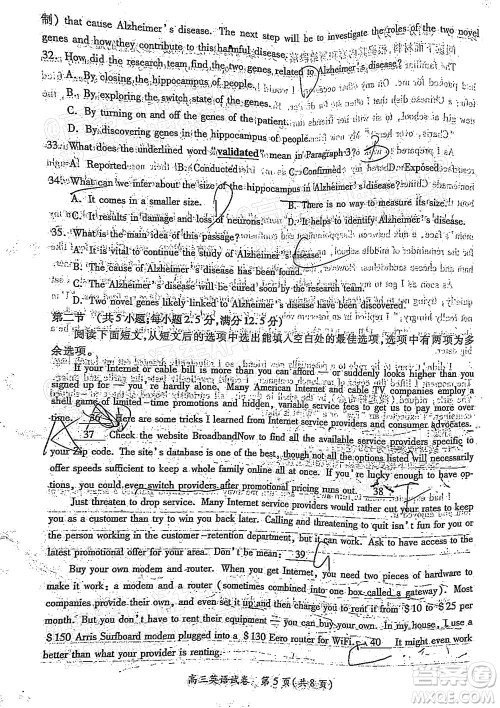 制) that cause Alzheimer's disease. The next step will be to investigate the roles of the two novel
genes and how they contribute to this harmful disease.
32. How did the research team find the two genes related to Alzheimer's disease?
A. By closing the hippocampus of people.
B. By exploring the switch state of the genes.
C. By turning off the hippocampus of people.
D. By discovering genes in the hippocampus of people.
33. What does the underlined word "validated" mean in Paragraph 3?
A. Reported B. Conducted C. Confirmed D. Exposed
34. What can we infer about the size of the hippocampus in Alzheimer's disease?
A. It comes in a smaller size. B. There is no way to measure its size.
C. It results in damage or loss of neurons. D. It helps to identify Alzheimer's disease.
35. What is the main idea of this passage?
A. It is vital to continue the study of Alzheimer's disease.
B. The cause of Alzheimer's disease has been found.
C. Alzheimer's disease will be cured soon by the research team.
D. Two novel genes likely linked to Alzheimer's disease have been discovered.
第二节 (共5小题,每小题2.5分,满分12.5分)
阅读下面短文,从短文后的选项中选出能填入空白处的最佳选项,选项中有两项为多
余选项。
If your Internet or cable bill is more than you can afford— or suddenly looks higher than you
signed up for — you're hardly alone. Many American Internet and cable TV companies employ a
shell game of limited-time promotions and hidden, variable service fees to get us to pay more over
time. 36 Here are some tricks I learned from Internet service providers and consumer advocates.
37 Check the website BroadbandNow to find all the available service providers specific to
your Zip code. The site's database is one of the best, though not foolproof—my parents have a
completely separate way of getting online at home. If you're lucky enough to have op-
tions, you could even switch providers after promotional pricing runs out. 38
Just threaten to drop service. Many Internet service providers would rather cut your rates to keep
you as a customer than try to win you back later. Calling and threatening to quit isn't fun for you or
the person working in the customer-retention department, but it can work. Ask to have access to the
latest promotional offer for your area. Don't be mean: 39
Buy your own modem and router. When you get Internet, you need two pieces of hardware
to make it work: a modem and a router (sometimes combined into one box called a gateway). Most
companies provide their own, but then charge you a monthly rental of anywhere from $10 to $25 per
month.
$150 Arris Surfboard modem plugged into a $130 Eero router for WiFi. 40 It might even work
better than what your provider is renting.
高三英语试卷 第5页(共8页)